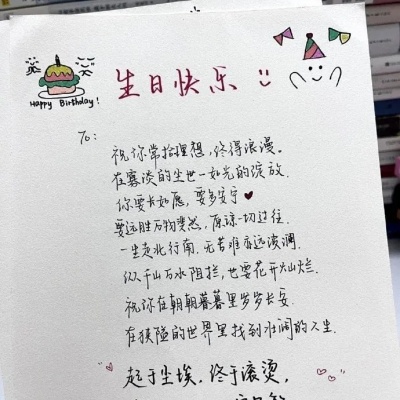 Happy Birthday!
生日快乐
To:
祝你常拾理想，终得浪漫。
在寡淡的尘世一如光的绽放
你要长如愿，要多安宁
要远胜万物斐然，原谅一切过往
一生走北行南，无苦难亦远波澜
纵千山万水阻拦，也要花开灿烂
祝你在朝朝暮暮里岁岁长安
在狭隘的世界里找到壮阔的人生
起于尘埃，终于滚烫，